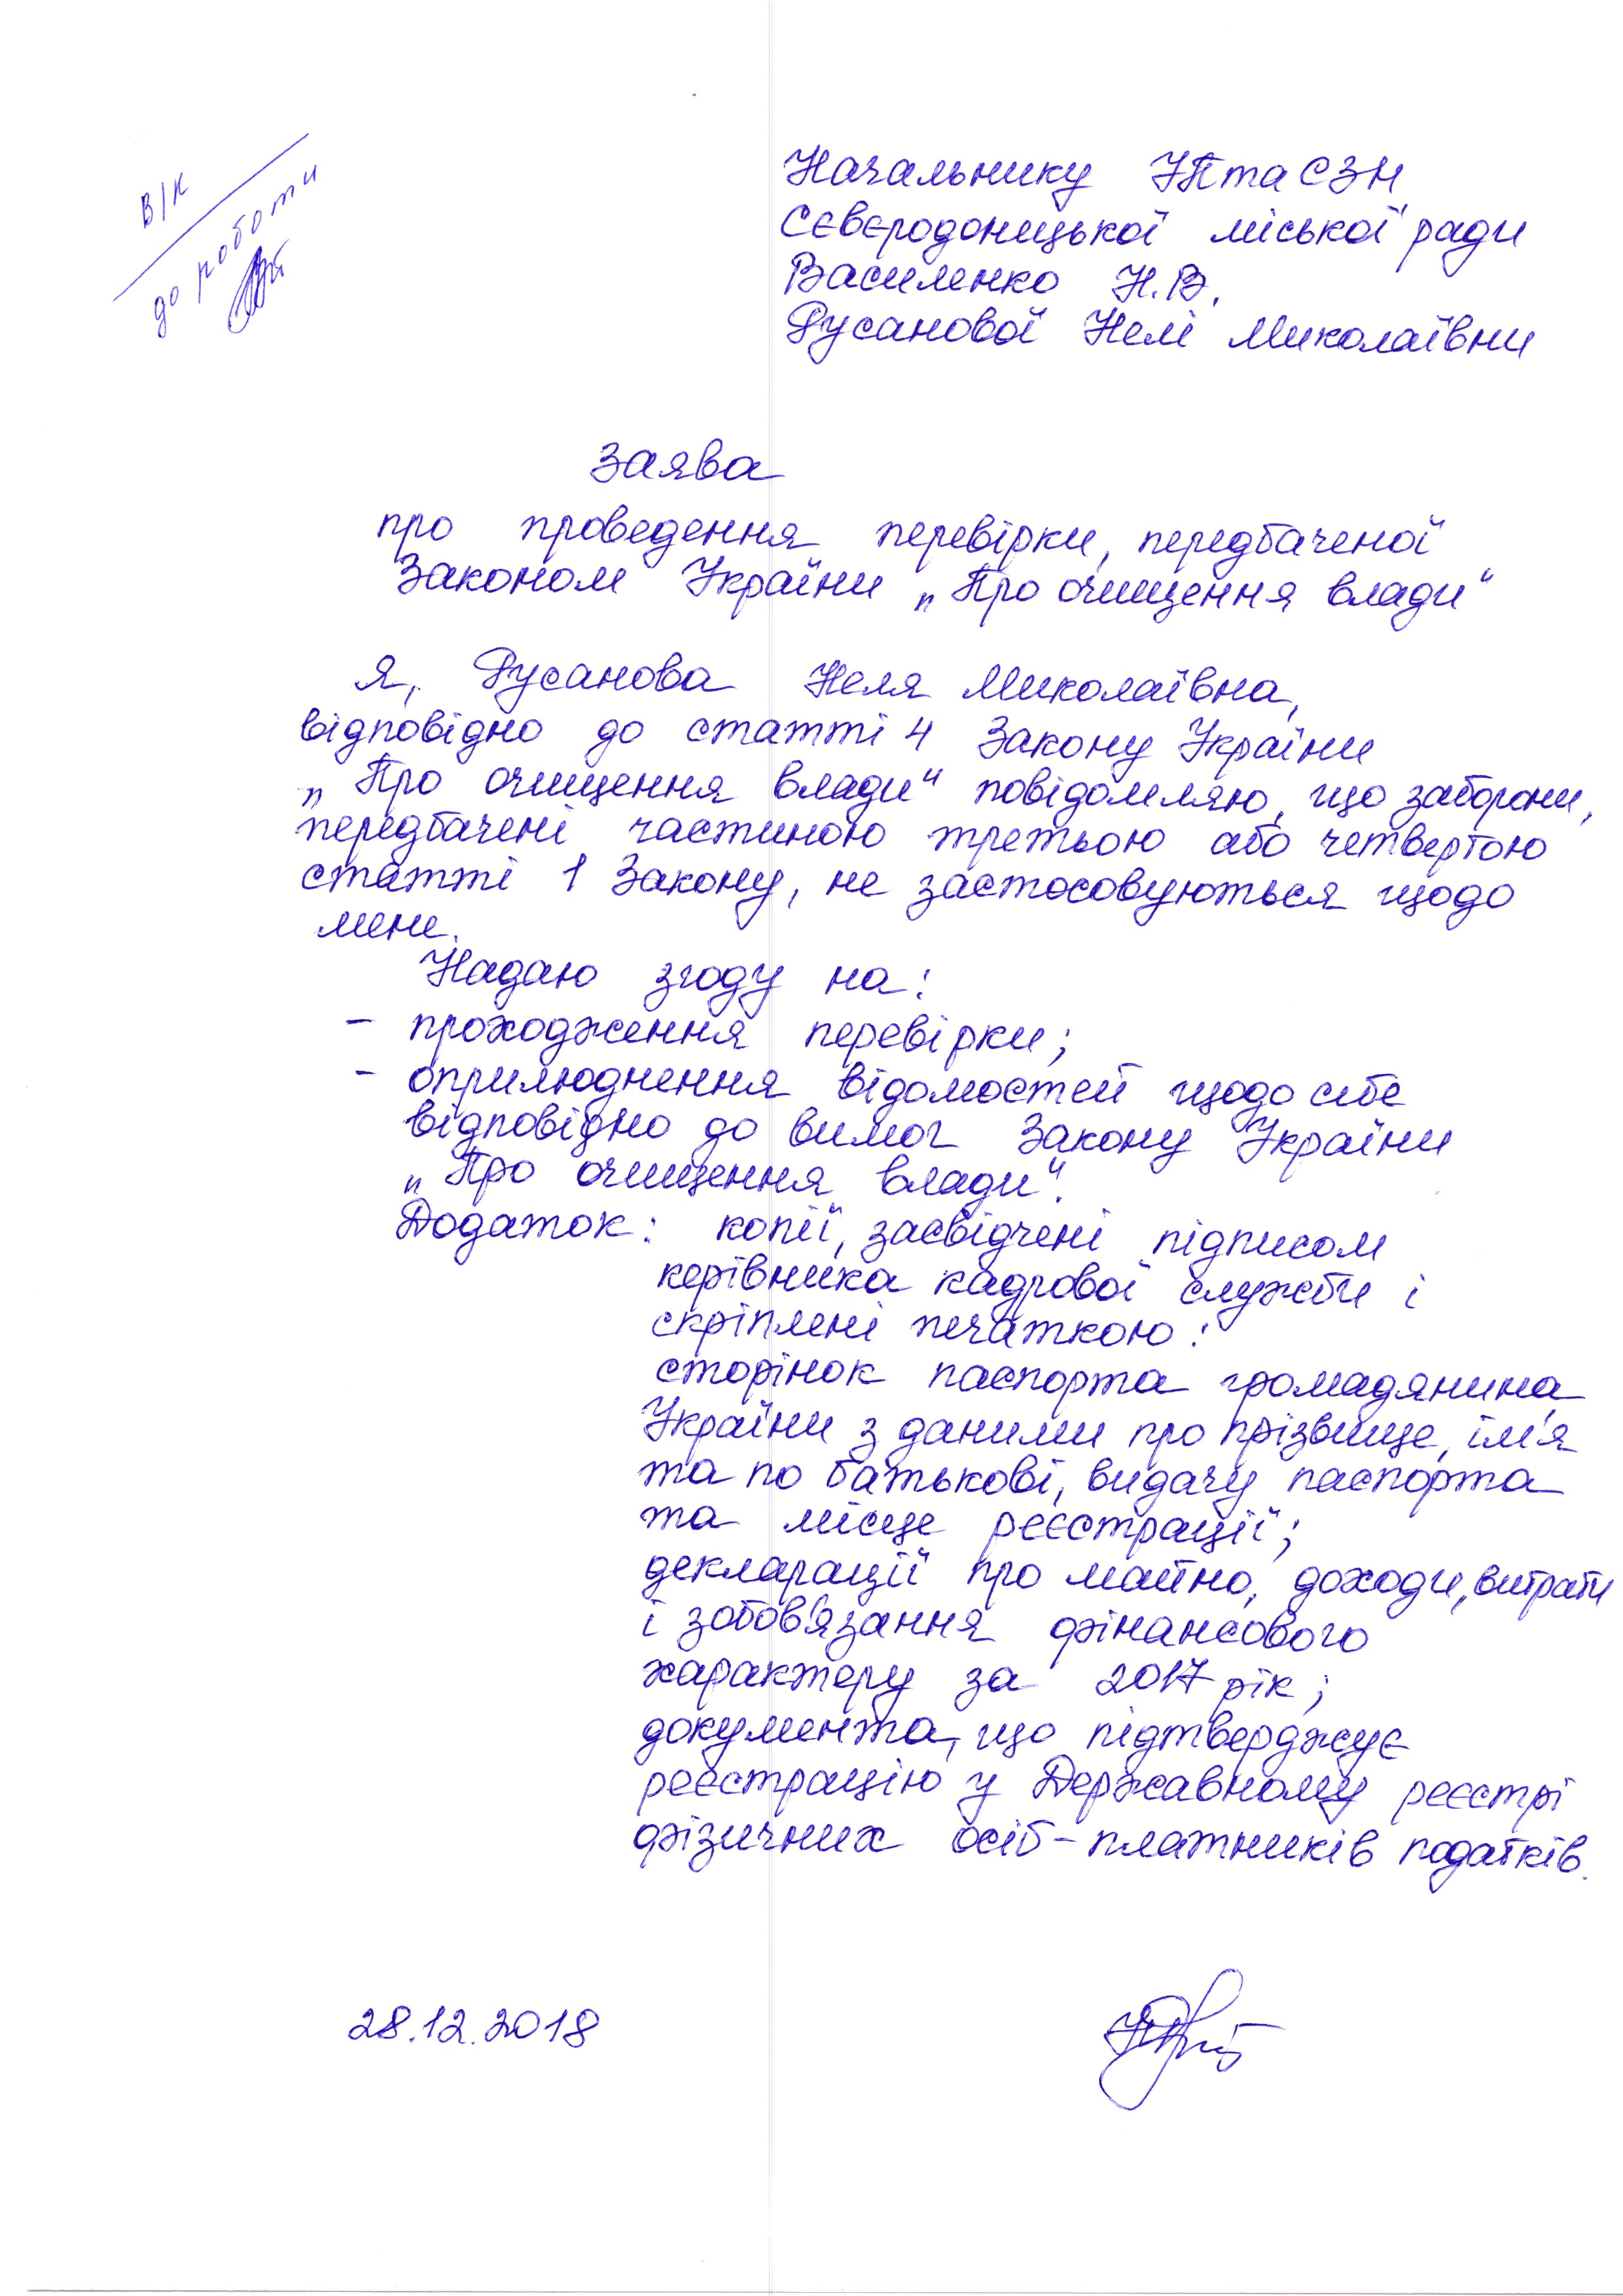 в/к
до роботи
Начальнику УПтаСЗН
Сєвєродонецької міської ради
Василенко Н.В.
Русанової Нелі Миколаївни
Заява
про проведення перевірки, передбаченої
Законом України „Про очищення влади“
Я, Русанова Неля Миколаївна,
відповідно до статті 4 Закону України
„Про очищення влади“ повідомляю, що заборони,
передбачені частиною третьою або четвертою
статті 1 Закону, не застосовуються щодо
мене.
Надаю згоду на:
- проходження перевірки;
- оприлюднення відомостей щодо себе
відповідно до вимог Закону України
„Про очищення влади“.
Додаток: копії, засвідчені підписом
керівника кадрової служби і
скріплені печаткою:
сторінок паспорта громадянина
України з даними про прізвище, ім'я
та по батькові, видачу паспорта
та місце реєстрації;
декларації про майно, доходи, витрати
і зобов'язання фінансового
характеру за 2017 рік;
документа, що підтверджує
реєстрацію у Державному реєстрі
фізичних осіб-платників податків.
28.12.2018